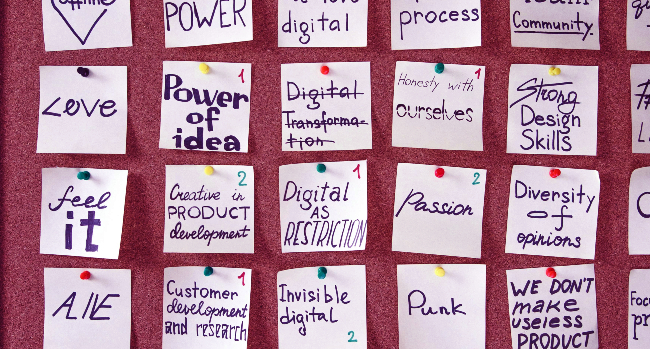 offline
POWER
digital
process
Community.
Love
1
Power
of
idea
Digital
Transforma-
tion
1
Honesty with
ourselves
Strong
Design
Skills
feel
it
2
Creative in
PRODUCT
development
1
Digital
AS
RESTRICTION
2
Passion
Diversity
of
opinions
1
Customer
development
and research
Invisible
digital
2
Punk
WE DON'T
make
useless
PRODUCT